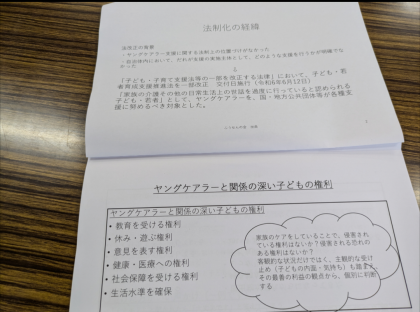 法制化の経緯
法改正の背景
・ヤングケアラー支援に関する法制上の位置づけがなかった
・自治体内において、だれが支援の実施主体として、どのような支援を行うかが明確でな
かった
↓
「子ども・子育て支援法等の一部を改正する法律」において、子ども・若
者育成支援推進法を一部改正 交付日施行(令和6年6月12日)
「家族の介護その他の日常生活上の世話を過度に行っていると認められる
子ども・若者」として、ヤングケアラーを、国・地方公共団体等が各種支
援に努めるべき対象とした。
ヤングケアラーと関係の深い子どもの権利
ヤングケアラーと関係の深い子どもの権利
・教育を受ける権利
・休み・遊ぶ権利
・意見を表す権利
・健康・医療への権利
・社会保障を受ける権利
・生活水準を確保
家族のケアをしていることで、侵害され
ている権利はないか?侵害される恐れの
ある権利はないか?
客観的な状況だけではく、主観的な受け
止め(子どもの内面・気持ち)も踏まえ、
その最善の利益の観点から、個別に判断
する